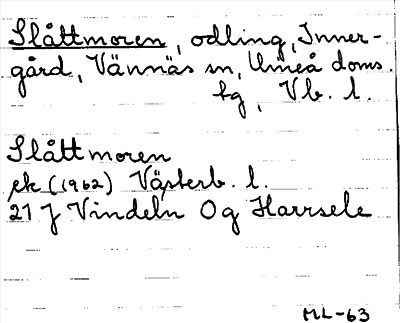 Slåttmoren, odling, Inner-
gård, Vännäs sn, Umeå doms.
hg, Vb. l.
Slåttmoren
ek (1962) Västerb. l.
21 J Vindeln Og Harrsele
ML-63